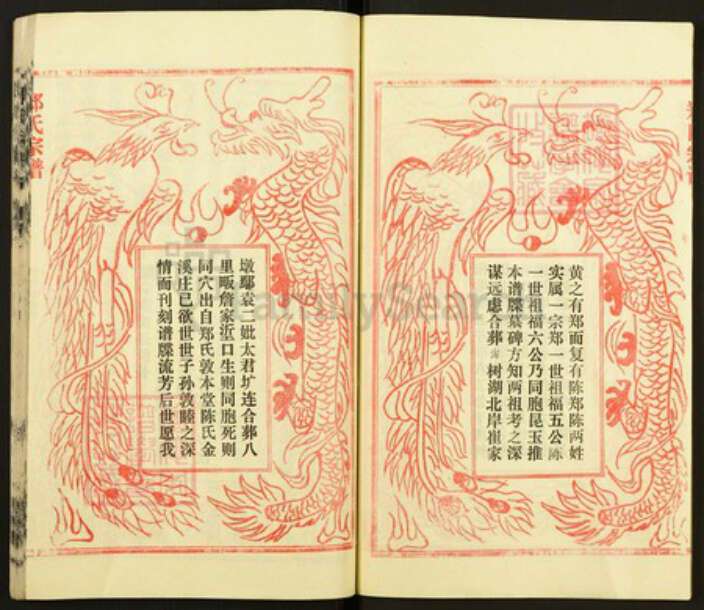 黄之有郑而复有陈郑陈两姓
实属一宗郑一世祖福五公陈
一世祖福六公乃同胞昆玉推
本谱牒墓碑方知两祖考之深
谋远虑合葬 树湖北岸崔家
墩鄢袁二妣太君圹连合葬八
里畈詹家 口生则同胞死则
同穴出自郑氏敦本堂陈氏金
溪庄已欲世世子孙敦睦之深
情而刊刻谱牒流芳后世愿我
郑氏宗谱
FamilySearch